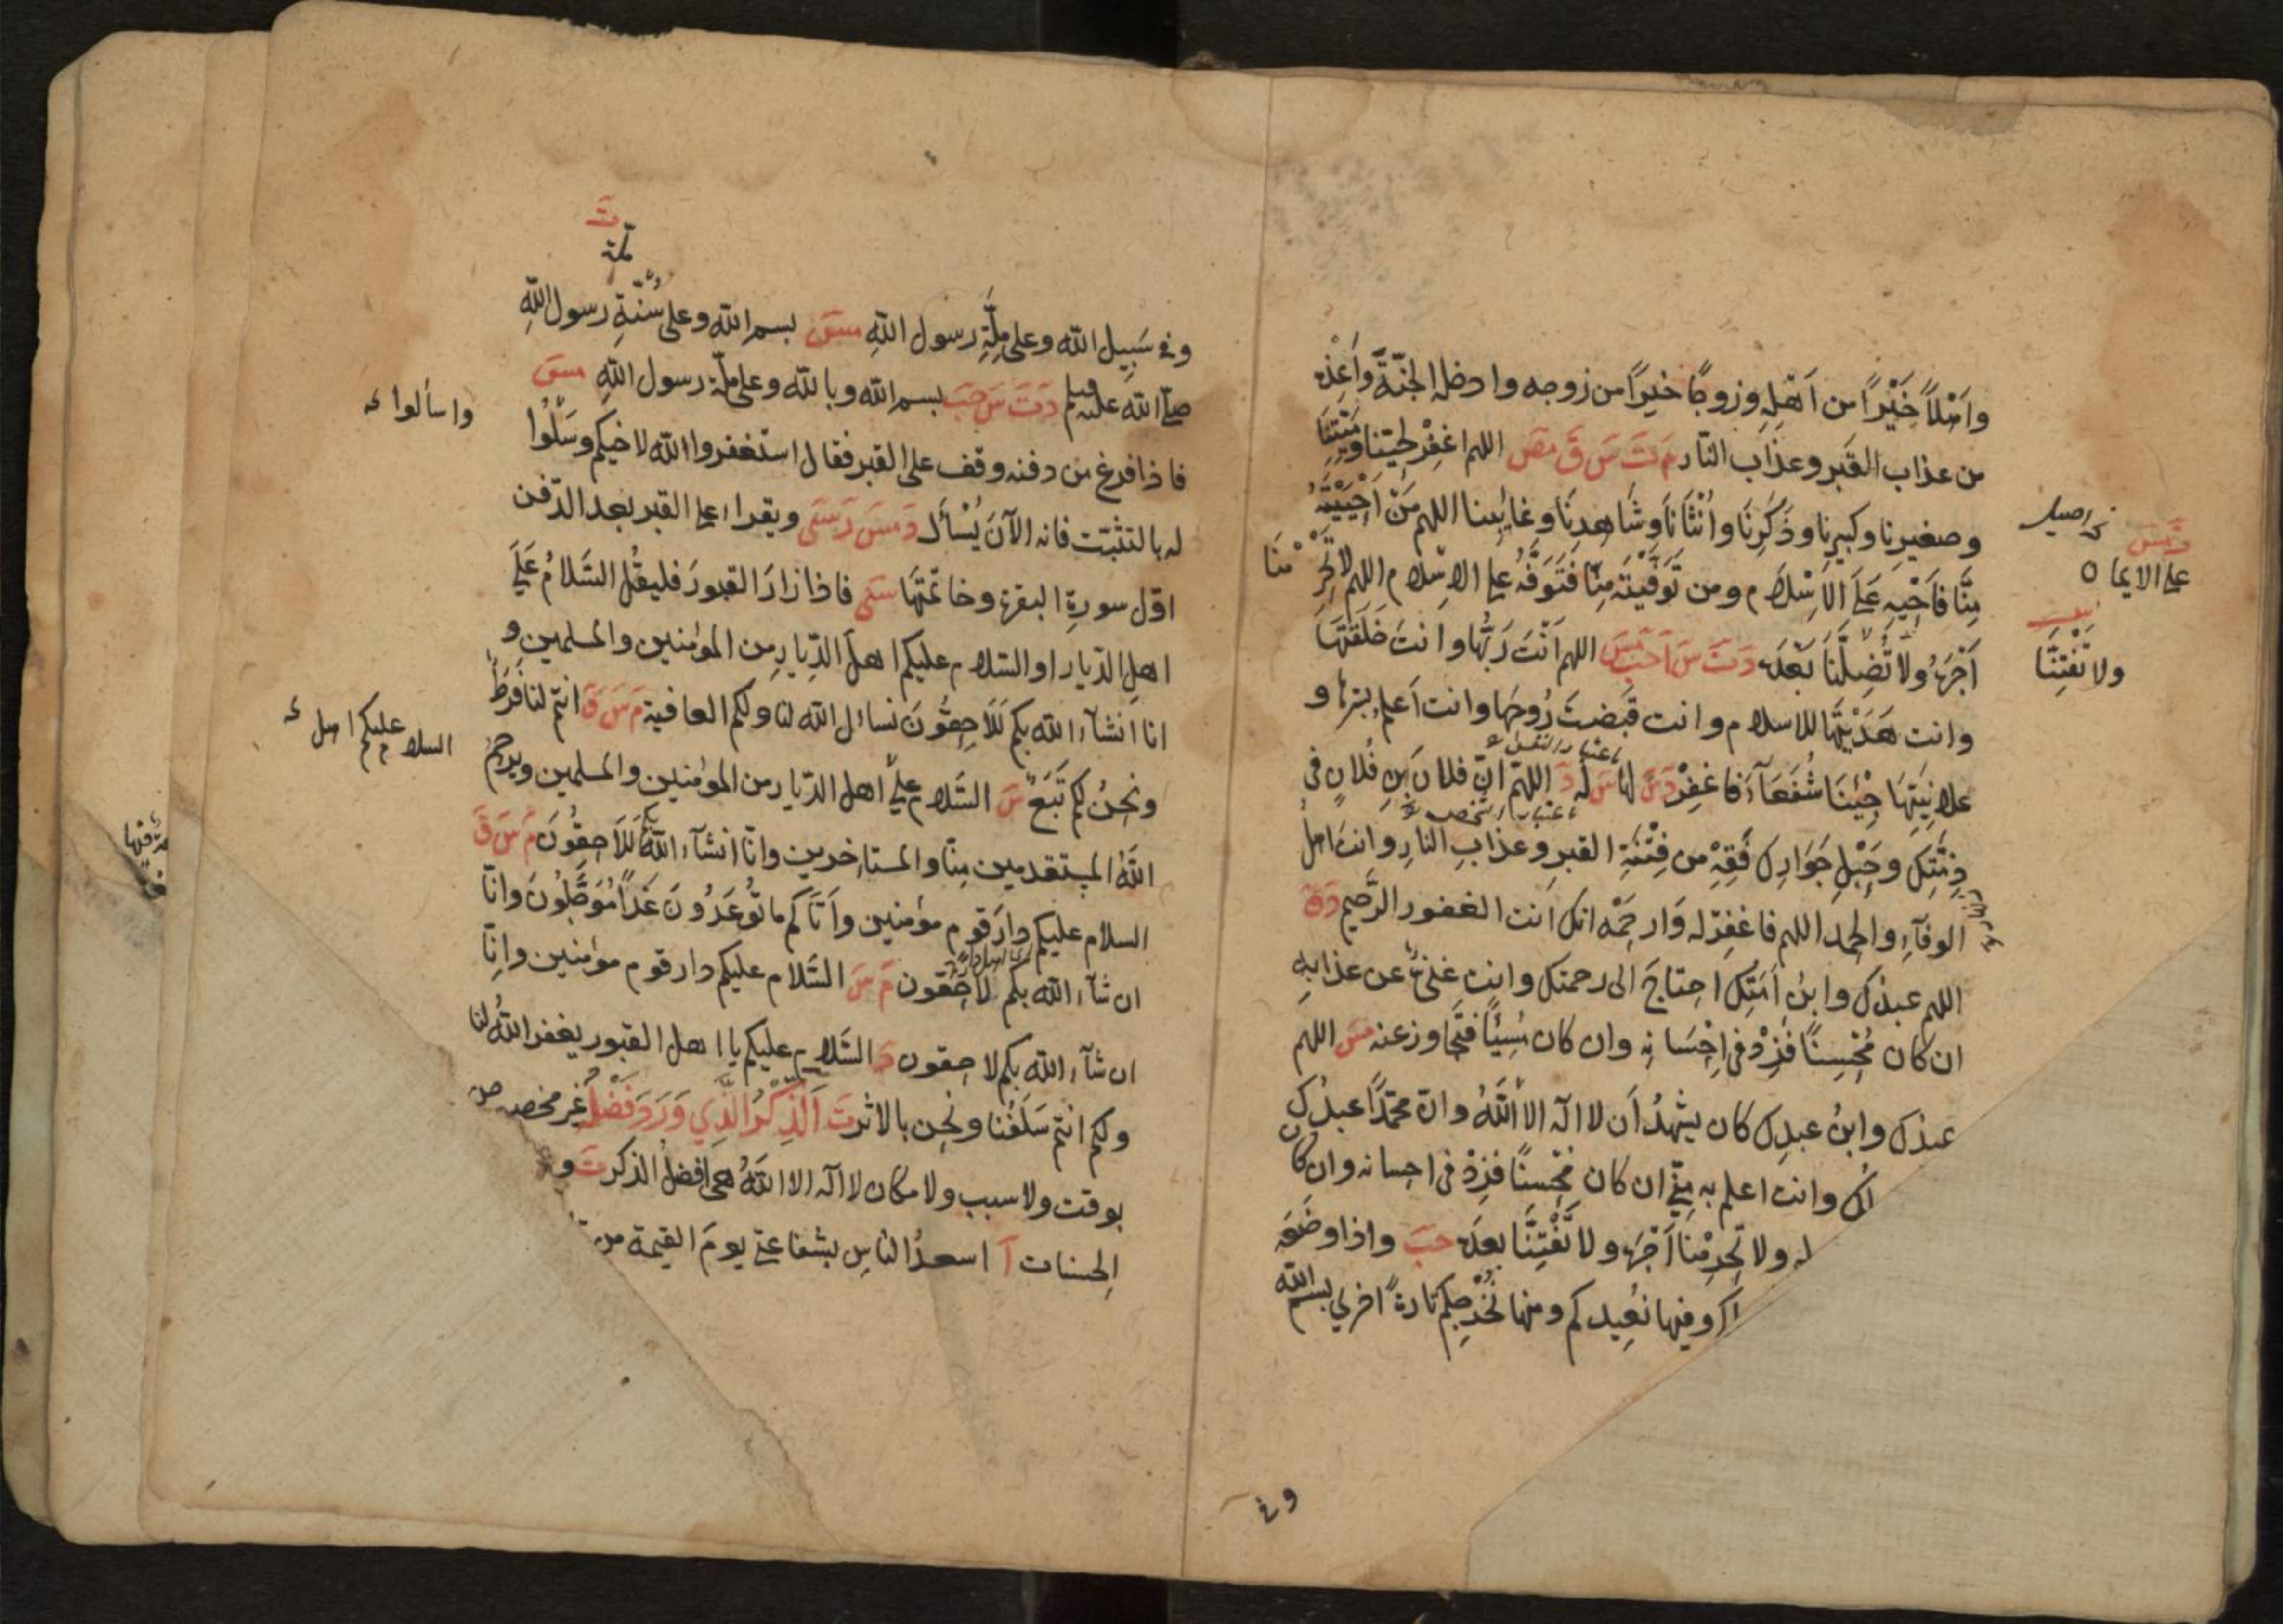 وَاَهْلاً خَيْرًا من اَهْلِهِ وزوجًا خيرًا من زوجه وادخله الجنّةَ وَاَعِذْه
من عذاب القبر وعذاب النار مَ تَ سَ قَ مصَ اللهم اغفِرْ لحيّنا وميّتنا
وصغيرِنا وكبيرِنا وذَكَرِنَا واُنْثَانَا وشَاهدِنَا وغائبِنا اللهم مَنْ اَحْيَيْتَهُ
مِنَّا فَاَحْيِهِ عَلَى الاِسْلَام ومن تَوَفَّيْتَه مِنّا فَتَوَفَّهُ على الاِسْلام اللهم لا تَحْرِمْنَا
اَجْرَهُ ولا تُضِلَّنَا بَعْدَه دَ تَ سَ اَ حبَ مسَ اللهم اَنْتَ رَبُّها وانتَ خَلَقْتَهَا
وانت هَدَيْتَهَا للاسلام وانت قَبَضتَ رُوحَها وانت اَعلم بسرّها و
علانِيَتِهَا جِئْنَا شُفَعَآءَ فَاغفِرْ دَسَ لها سَ له دَ اللهمّ انّ فلانَ بنِ فُلانٍ فى
ذِمَّتِكَ وحَبْلِ جَوَارِك فَقِهْ من فِتْنَةِ القبر وعذابِ النارِ وانت اهلُ
الوفآءِ والحمد اللهم فاغفِرْ له وَارحَمْه انك اَنت الغفور الرّحيم دَقَ
اللهم عبدُك وابنُ اَمَتِكَ احتاجَ الى رحمتك وانت غنىٌّ عن عذابِه
ان كان مُحْسِنًا فَزِدْ فى اِحْسَانِه وان كان مُسِيْئًا فتجاوز عنه مسَ اللهم
عبدُك وابنُ عبدِك كان يشهدُ اَن لا اله الا اللهُ وانّ محمّدًا عبدُك
لُك وانت اعلم به منّى ان كان مُحْسنًا فزِدْ فى احسانه وان كان
له ولا تَحْرِمْنَا اَجْرَه ولا تَفْتِنَّا بعدَه حبَ واذا وضعَه
كم وفيها نُعِيدكم ومنها نُخْرِجكم تارةً اخرى بسم الله
على الايمان
ولا تَفْتِنَّا
وفى
وفى سَبِيلِ الله وعلى مِلَّةِ رسول اللهِ مسَ بسم الله وعلى سُنَّةِ رسول اللهِ
صلّى الله عليه وسلم دَ تَ سَ حبَ بسم الله وبالله وعلى ملّة رسول اللهِ مسَ
فاذا فرغ من دفنه وقف على القبر فقال استغفروا الله لاخيكم وسَلُوا
له بالتثبّت فانه الآنَ يُسْأَل دَ مسَ رَ سنَى ويقرأ على القبر بعد الدّفن
اوّل سورةِ البقرة وخاتمتَهَا سنَى فاذا زارَ القبورَ فليقُل السَّلامُ عَلَى
اهلِ الدّيار او السّلام عليكم اهلَ الدّيارِ من المؤمنين والمسلمين و
انا اِنشآء الله بكم لَلاحِقُونَ نسأل الله لنا ولكم العافية مَ سَ قَ انتم لنا فَرَطٌ
ونحنُ لكم تَبَعٌ سَ السَّلام على اهل الدّيار من المؤمنين والمسلمين ويرحَمُ
اللهُ المستقدمين منّا والمستأخرين وانّا انشآء اللهُ بكم لَلَاحِقُونَ مَ سَ قَ
السلام عليكم دارَ قومٍ مؤمنين واَتَاكم ما تُوعَدُونَ غَدًا مُؤَجَّلُونَ وانّا
ان شآء الله بكم لاحِقُون مَ سَ السّلام عليكم دار قوم مؤمنين وانّا
ان شآء الله بكم لاحِقون دَ السَّلام عليكم يا اهل القبور يغفر اللهُ لنا
ولكم انتم سَلَفُنا ونحن بالاثر تَ اَلذِّكْرُ الَّذِي وَرَدَ فَضْلُهُ غير مخصوص
بوقت ولا سبب ولا مكان لا اله الا اللهُ هى افضلُ الذكر تَ و
الحسنات آ اسعدُ الناسِ بشفاعتى يومَ القيمة من
ملّة
واسألوا
السلام عليكم اهل